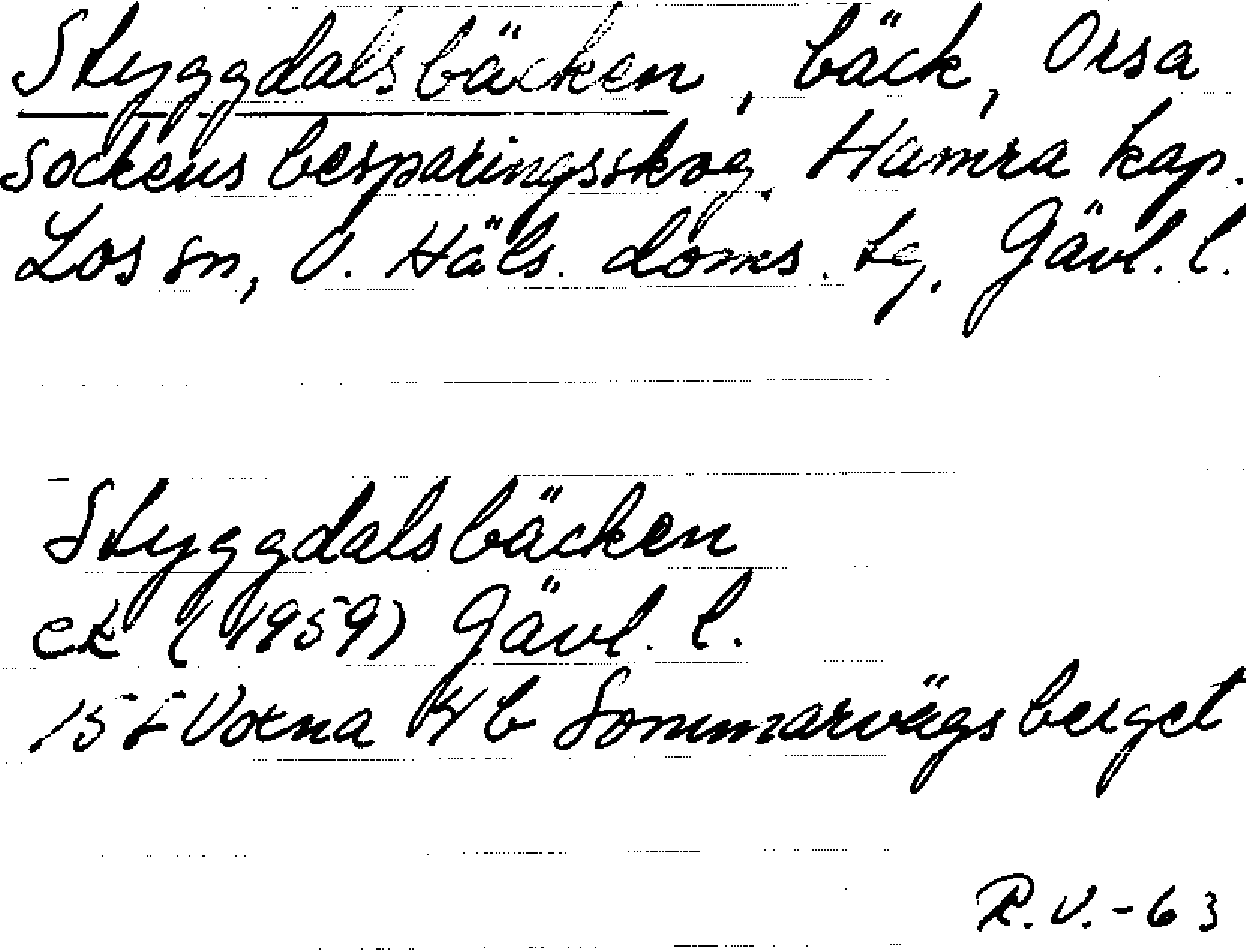 Styggdalsbäcken, bäck, Orsa
sockens besparingsskog. Hamra kap.
Los sn, V. Häls. doms. tg. Gävl. l.
Styggdalsbäcken
ek (1959) Gävl. l.
15 F Voxna 4 b Sommarvägsberget
R.V.-63